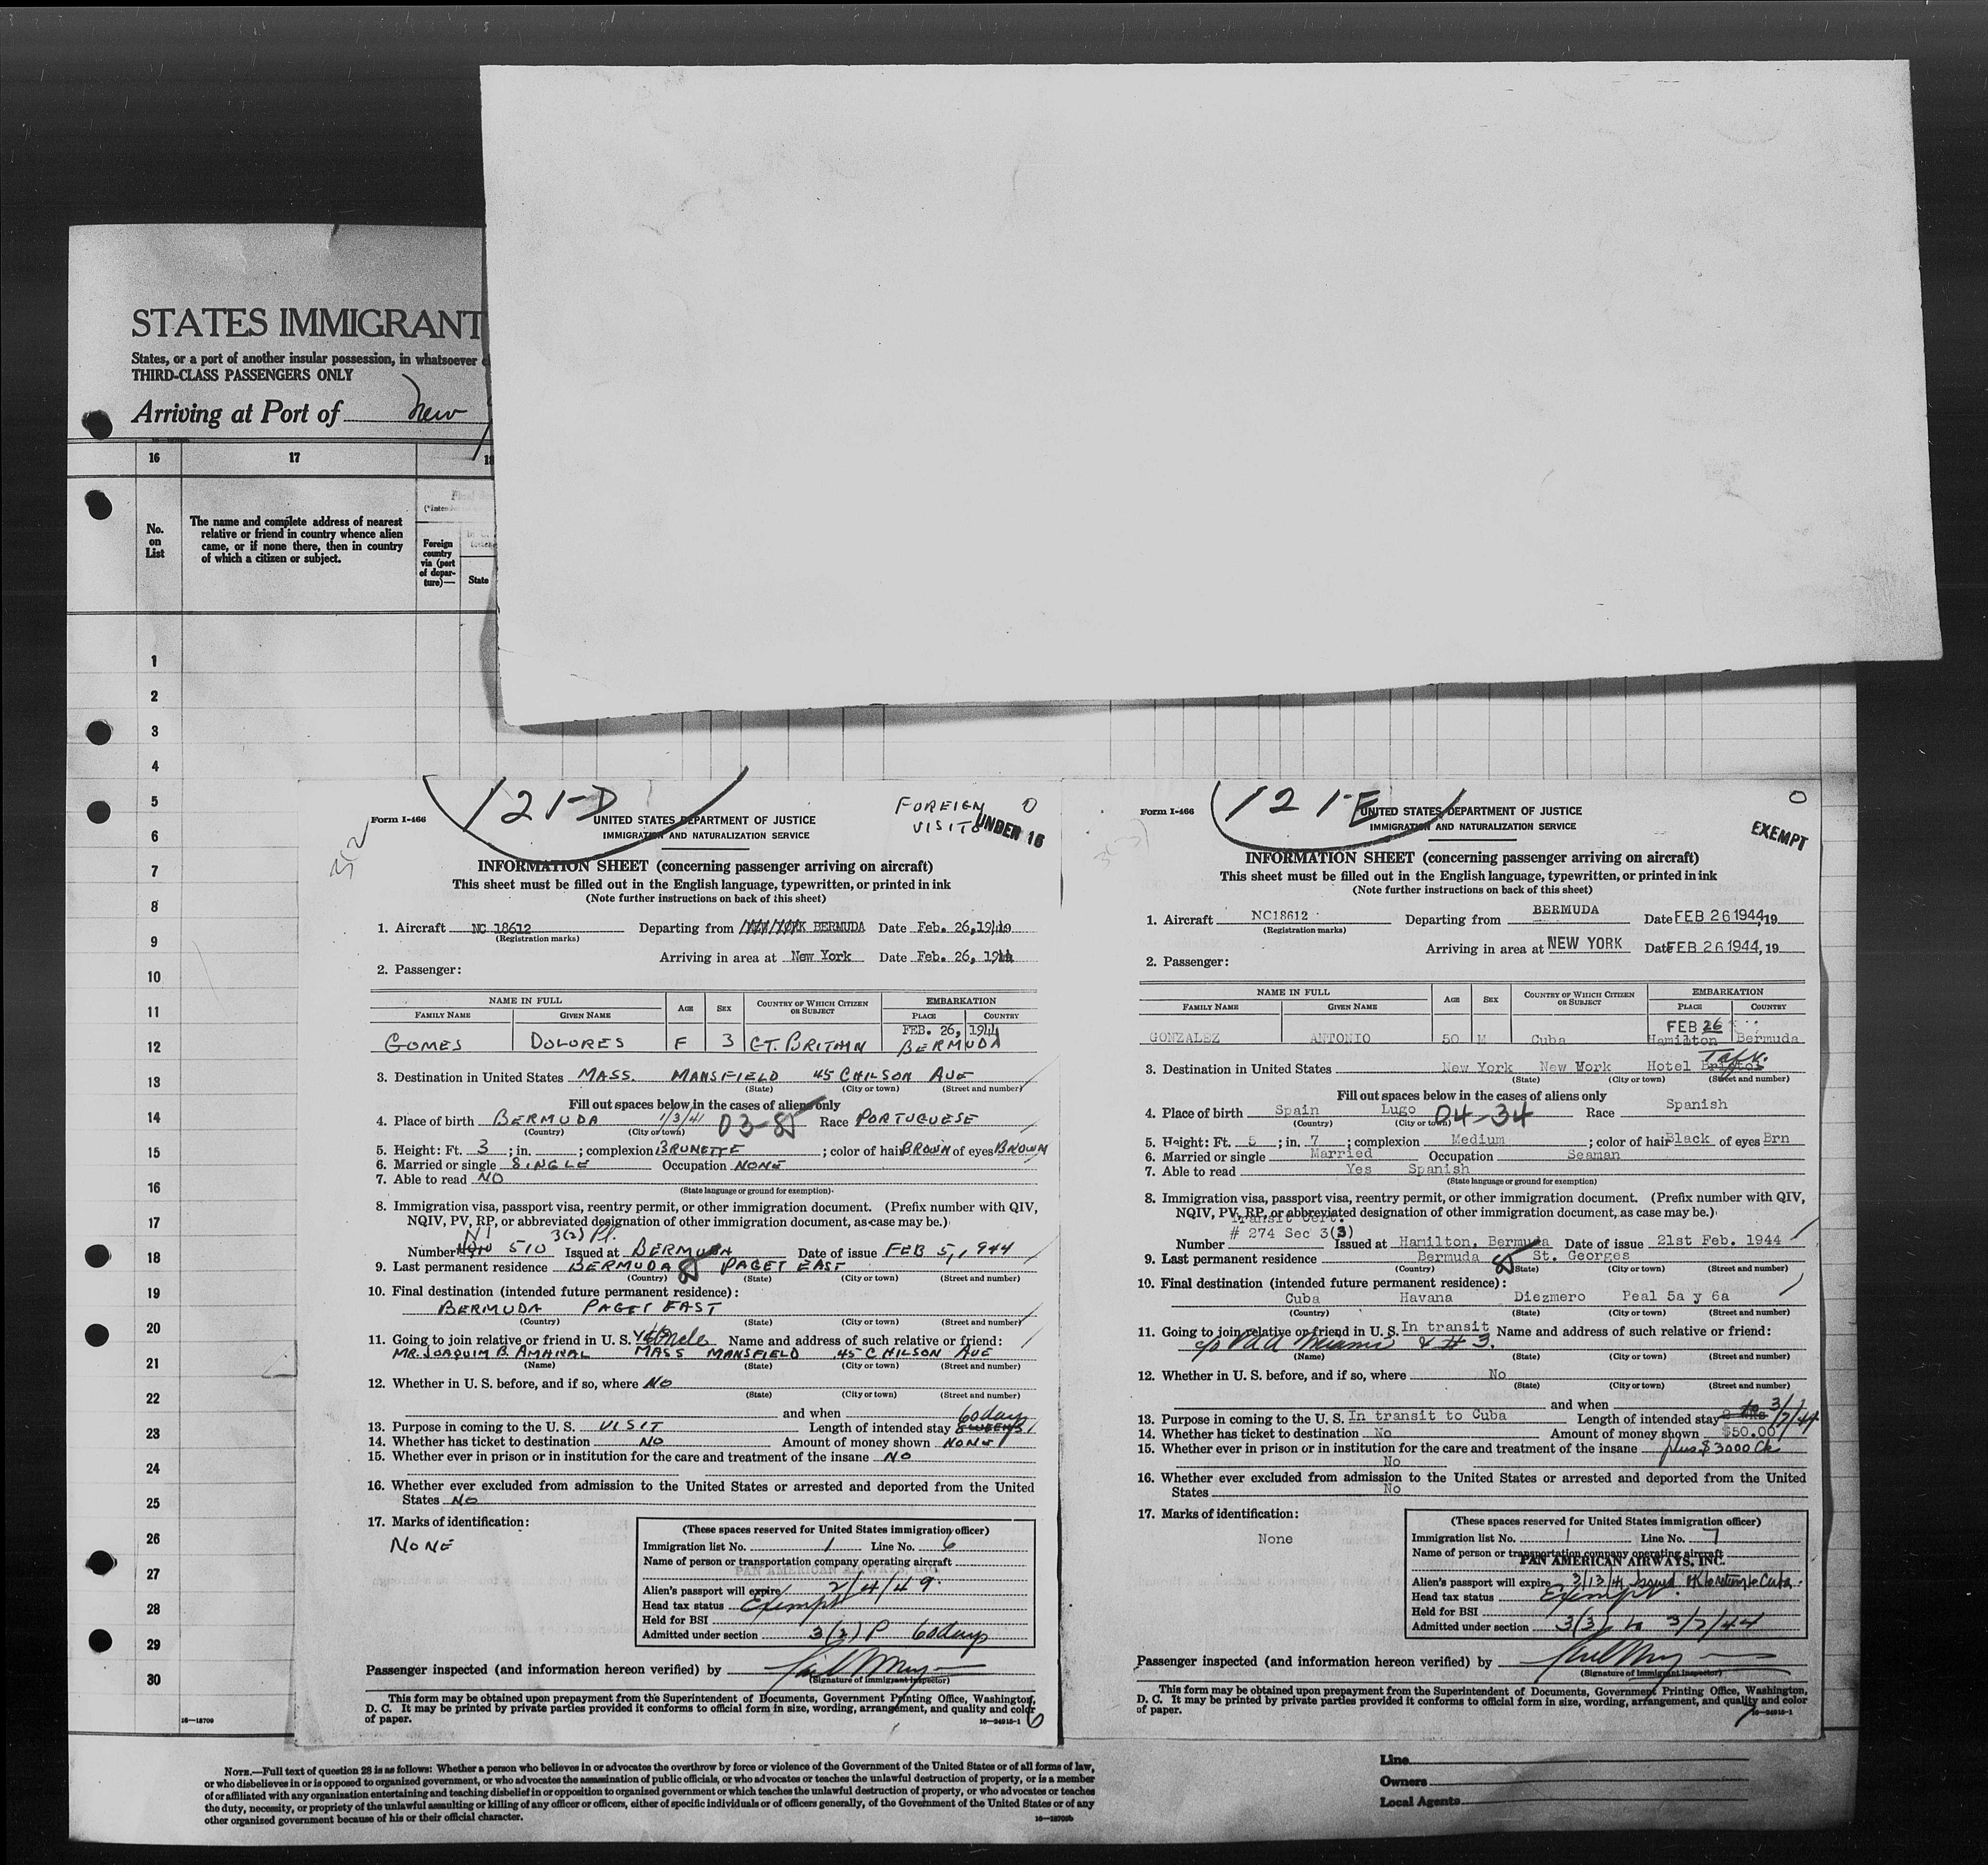 STATES IMMIGRANT
States, or a port of another insular possession, in whatsoever
THIRD-CLASS PASSENGERS ONLY
Arriving at Port of New
16 17
No. on List
The name and complete address of nearest
relative or friend in country whence alien
came, or if none there, then in country
of which a citizen or subject.
Foreign
country
via (port
of depar-
ture)—
State
1
2
3
4
5
6
7
8
9
10
11
12
13
14
15
16
17
18
19
20
21
22
23
24
25
26
27
28
29
30
16—18709
121-D
FOREIGN
VISITO
UNDER 16
Form I-466
UNITED STATES DEPARTMENT OF JUSTICE
IMMIGRATION AND NATURALIZATION SERVICE
INFORMATION SHEET (concerning passenger arriving on aircraft)
This sheet must be filled out in the English language, typewritten, or printed in ink
(Note further instructions on back of this sheet)
1. Aircraft NC 18612 Departing from BERMUDA Date Feb. 26, 1944
(Registration marks)
Arriving in area at New York Date Feb. 26, 1944
2. Passenger:
NAME IN FULL AGE SEX COUNTRY OF WHICH CITIZEN OR SUBJECT EMBARKATION
FAMILY NAME GIVEN NAME PLACE COUNTRY
FEB. 26, 1944
GOMES DOLORES F 3 GT. BRITAIN BERMUDA
3. Destination in United States MASS. MANSFIELD 45 CHILSON AVE
(State) (City or town) (Street and number)
Fill out spaces below in the cases of aliens only
4. Place of birth BERMUDA 1/3/41 03-85 Race PORTUGUESE
(Country) (City or town)
5. Height: Ft. 3; in. ; complexion BRUNETTE; color of hair BROWN of eyes BROWN
6. Married or single SINGLE Occupation NONE
7. Able to read NO
(State language or ground for exemption)
8. Immigration visa, passport visa, reentry permit, or other immigration document. (Prefix number with QIV,
NQIV, PV, RP, or abbreviated designation of other immigration document, as case may be.)
3(2) Pl.
Number 510 Issued at BERMUDA Date of issue FEB 5, 1944
9. Last permanent residence BERMUDA PAGET EAST
(Country) (State) (City or town) (Street and number)
10. Final destination (intended future permanent residence):
BERMUDA PAGET EAST
(Country) (State) (City or town) (Street and number)
11. Going to join relative or friend in U. S. Uncle Name and address of such relative or friend:
MR. JOAQUIM B. AMARAL MASS MANSFIELD 45 CHILSON AVE
(Name) (State) (City or town) (Street and number)
12. Whether in U. S. before, and if so, where NO
(State) (City or town) (Street and number)
and when
13. Purpose in coming to the U. S. VISIT Length of intended stay 60 days
14. Whether has ticket to destination NO Amount of money shown NONE
15. Whether ever in prison or in institution for the care and treatment of the insane NO
16. Whether ever excluded from admission to the United States or arrested and deported from the United
States NO
17. Marks of identification:
NONE
(These spaces reserved for United States immigration officer)
Immigration list No. 1 Line No. 6
Name of person or transportation company operating aircraft
PAN AMERICAN AIRWAYS, INC.
Alien's passport will expire 2/4/49.
Head tax status Exempt
Held for BSI
Admitted under section 3(2) P 60 days
Passenger inspected (and information hereon verified) by
(Signature of immigrant inspector)
This form may be obtained upon prepayment from the Superintendent of Documents, Government Printing Office, Washington,
D. C. It may be printed by private parties provided it conforms to official form in size, wording, arrangement, and quality and color
of paper.
16—24915-1
6
121-E
EXEMPT
Form I-466
UNITED STATES DEPARTMENT OF JUSTICE
IMMIGRATION AND NATURALIZATION SERVICE
INFORMATION SHEET (concerning passenger arriving on aircraft)
This sheet must be filled out in the English language, typewritten, or printed in ink
(Note further instructions on back of this sheet)
1. Aircraft NC18612 Departing from BERMUDA Date FEB 26 1944, 19
(Registration marks)
Arriving in area at NEW YORK Date FEB 26 1944, 19
2. Passenger:
NAME IN FULL AGE SEX COUNTRY OF WHICH CITIZEN OR SUBJECT EMBARKATION
FAMILY NAME GIVEN NAME PLACE COUNTRY
FEB 26
GONZALEZ ANTONIO 50 M Cuba Hamilton Bermuda
Taft.
3. Destination in United States New York New York Hotel Bristol
(State) (City or town) (Street and number)
Fill out spaces below in the cases of aliens only
4. Place of birth Spain Lugo 04-34 Race Spanish
(Country) (City or town)
5. Height: Ft. 5; in. 7; complexion Medium; color of hair Black of eyes Brn
6. Married or single Married Occupation Seaman
7. Able to read Yes Spanish
(State language or ground for exemption)
8. Immigration visa, passport visa, reentry permit, or other immigration document. (Prefix number with QIV,
NQIV, PV, RP, or abbreviated designation of other immigration document, as case may be.)
Transit Cert.
# 274 Sec 3(3)
Number Issued at Hamilton, Bermuda Date of issue 21st Feb. 1944
9. Last permanent residence Bermuda St. Georges
(Country) (State) (City or town) (Street and number)
10. Final destination (intended future permanent residence):
Cuba Havana Diezmero Peal 5a y 6a
(Country) (State) (City or town) (Street and number)
11. Going to join relative or friend in U. S. In transit Name and address of such relative or friend:
c/o PAA Miami & # 3.
(Name) (State) (City or town) (Street and number)
12. Whether in U. S. before, and if so, where No
(State) (City or town) (Street and number)
and when
13. Purpose in coming to the U. S. In transit to Cuba Length of intended stay to 3/7/44
14. Whether has ticket to destination No Amount of money shown $50.00
15. Whether ever in prison or in institution for the care and treatment of the insane plus $3000 Ck
No
16. Whether ever excluded from admission to the United States or arrested and deported from the United
States No
17. Marks of identification:
None
(These spaces reserved for United States immigration officer)
Immigration list No. 1 Line No. 7
Name of person or transportation company operating aircraft
PAN AMERICAN AIRWAYS, INC.
Alien's passport will expire 3/13/41 issued OK to return to Cuba.
Head tax status Exempt
Held for BSI
Admitted under section 3(3) to 3/7/44
Passenger inspected (and information hereon verified) by
(Signature of immigrant inspector)
This form may be obtained upon prepayment from the Superintendent of Documents, Government Printing Office, Washington,
D. C. It may be printed by private parties provided it conforms to official form in size, wording, arrangement, and quality and color
of paper.
16—24915-1
7
NOTE.—Full text of question 28 is as follows: Whether a person who believes in or advocates the overthrow by force or violence of the Government of the United States or of all forms of law,
or who disbelieves in or is opposed to organized government, or who advocates the assassination of public officials, or who advocates or teaches the unlawful destruction of property, or is a member
of or affiliated with any organization entertaining and teaching disbelief in or opposition to organized government or which teaches the unlawful destruction of property, or who advocates or teaches
the duty, necessity, or propriety of the unlawful assaulting or killing of any officer or officers, either of specific individuals or of officers generally, of the Government of the United States or of any
other organized government because of his or their official character.
16—18709b
Line
Owners
Local Agents